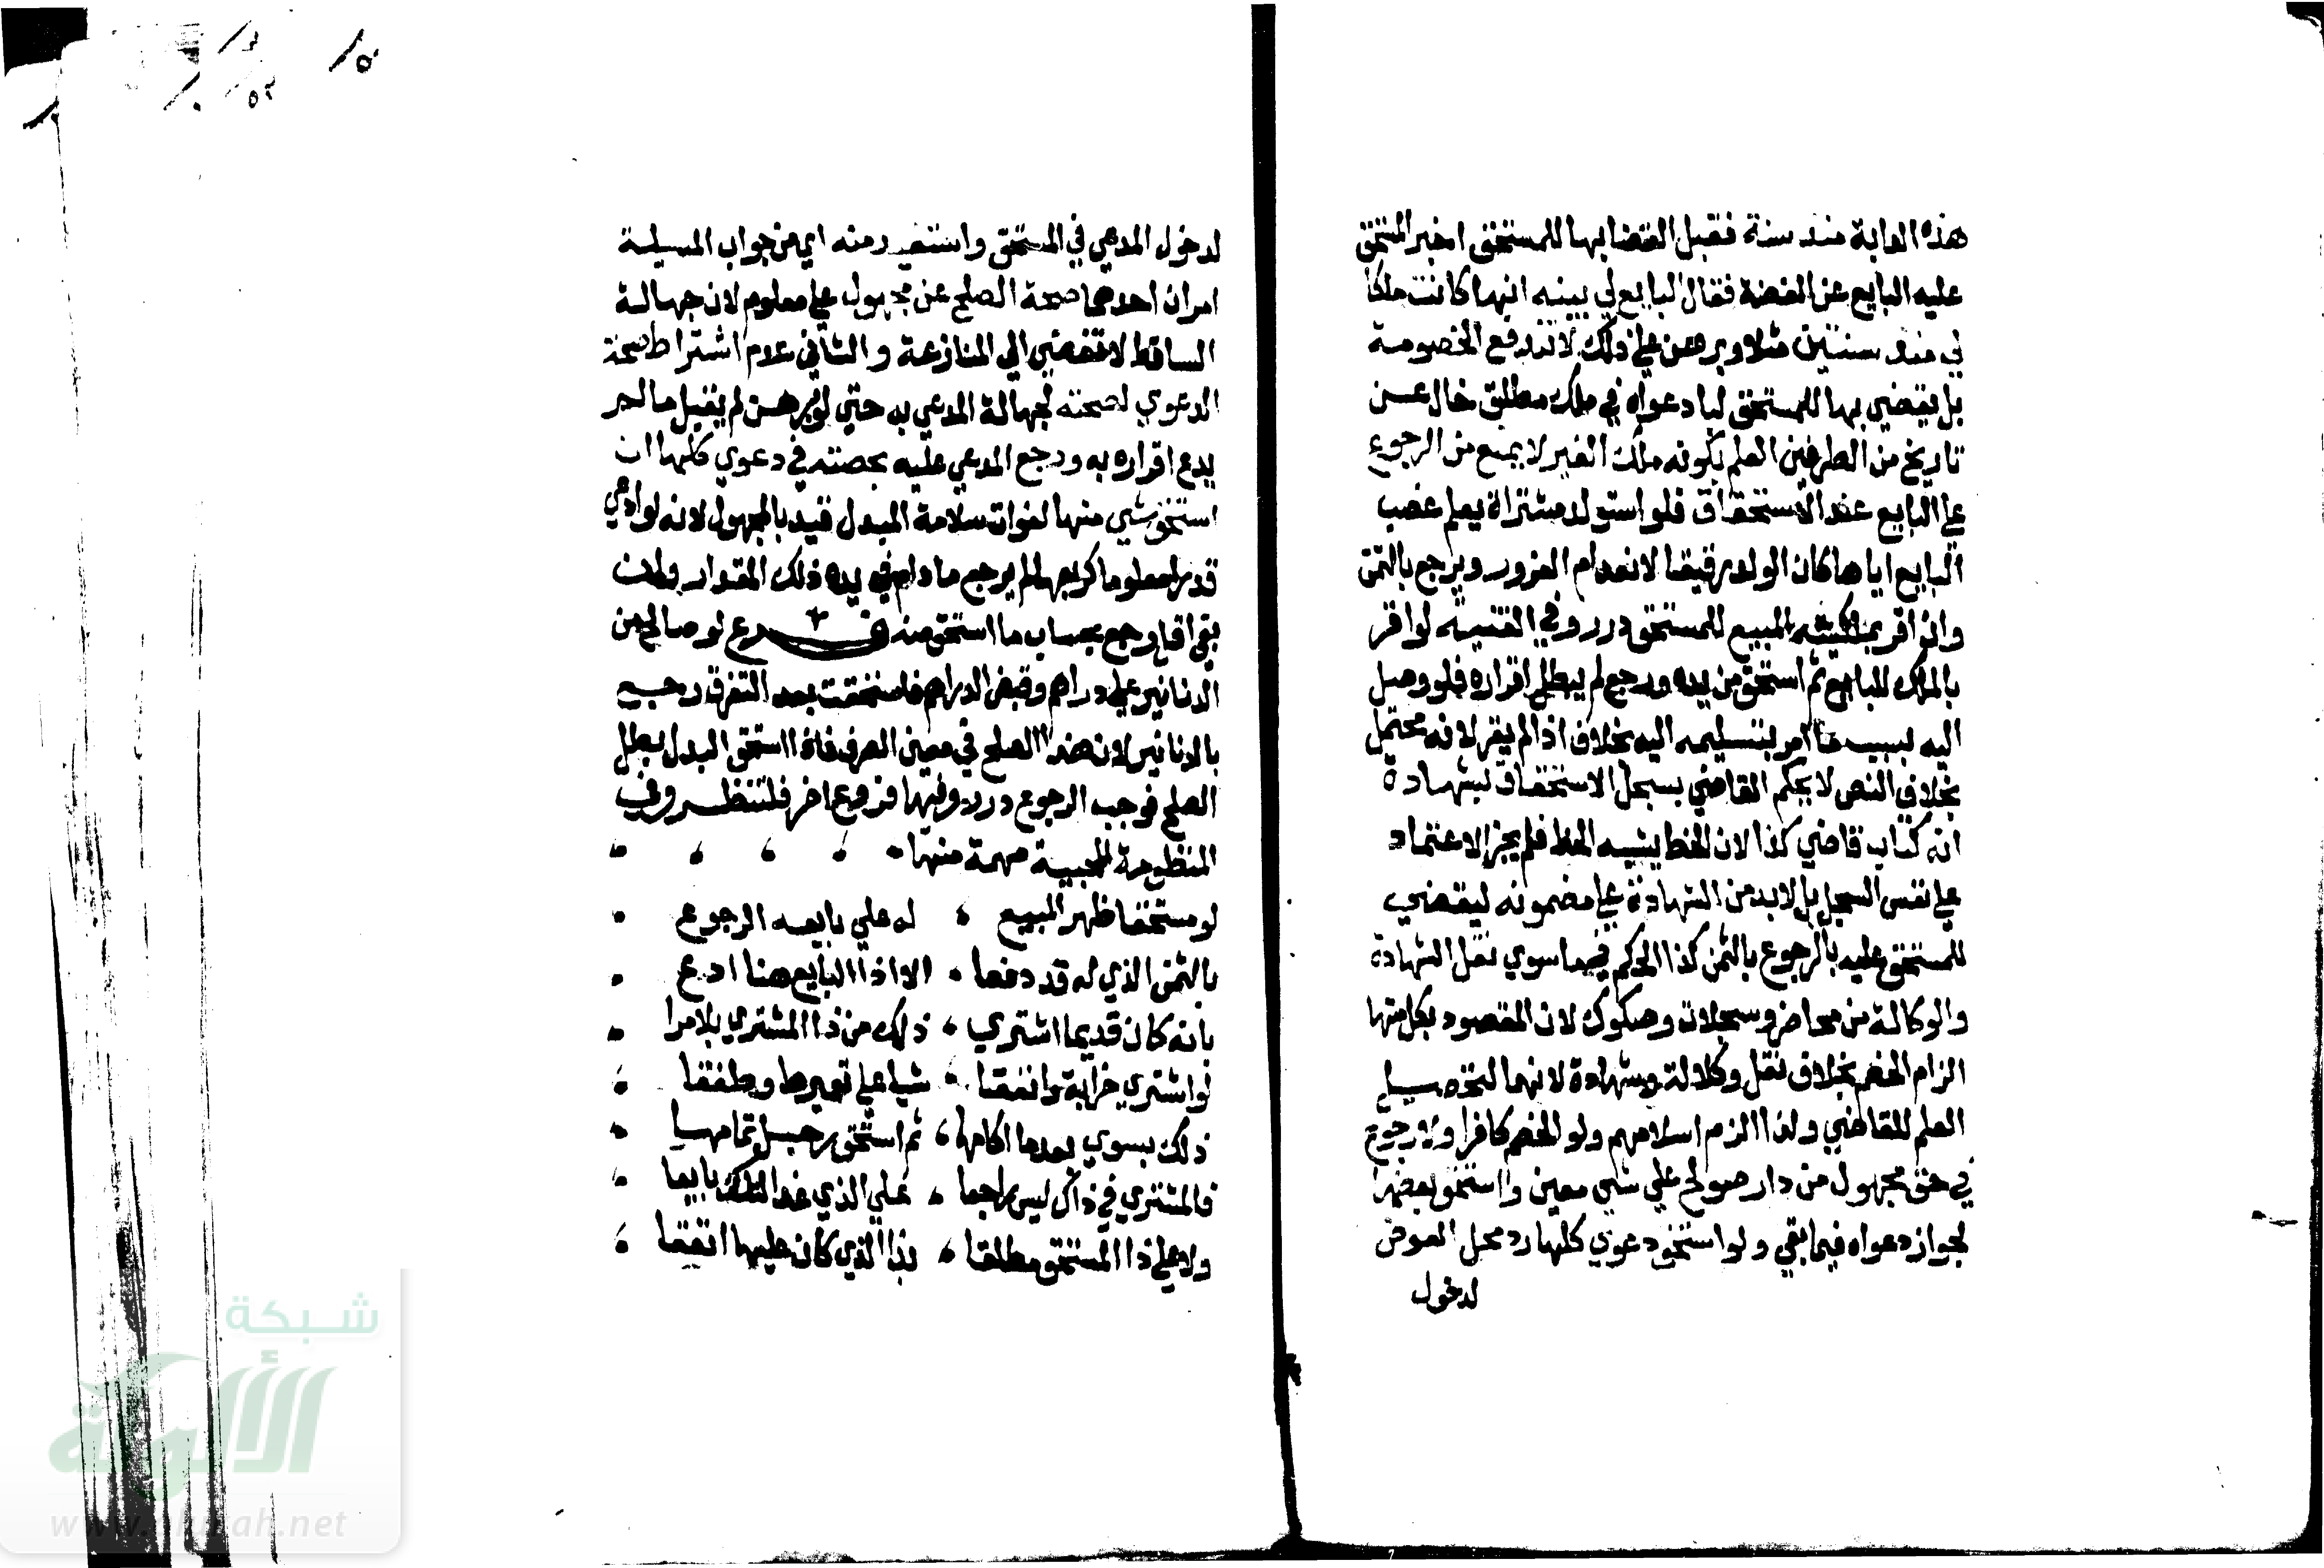 هذه الدابة منذ سنة فقبل القضا بها للمستحق اخبر المستحق
عليه البايع عن القضة فقال البايع لي بينه انها كانت ملكا
لي منذ سنتين مثلا وبرهن علي ذلك لا تندفع الخصومة
بل يقضي بها للمستحق لبا دعواه في ملك مطلق خال عن
تاريخ من الطرفين العلم بكونه ملك الغير لا يمنع من الرجوع
علي البايع عند الاستحقاق فلو استولد مشتراة يعلم غصب
البايع اياها كان الولد رقيقا لانعدام الغرور ويرجع بالثمن
وان اقر بملكيته المبيع للمستحق درر وفي القنيه لو اقر
بالملك للبايع ثم استحق من يده ورجع لم يبطل اقراره فلو وصل
اليه بسبب ما امر بتسليمه اليه بخلاف اذا لم يقر لانه محتمل
بخلاف النص لا يحكم القاضي بسجل الاستحقاق بشهادة
انه كتاب قاضي كذا لان الخط يشبه الخط فلم يجز الاعتماد
علي نفس السجل بل لا بد من الشهادة علي مضمونه ليقضي
للمستحق عليه بالرجوع بالثمن كذا الحكم فيما سوي نقل الشهادة
والوكالة من محاضر وسجلات وصكوك لان المقصود بكل منها
الزام الخصم بخلاف نقل وكلالة وشهادة لانهما لتحصيل
العلم للقاضي ولذا الزم اسلامهم ولو الخصم كافرا ولا رجوع
في حق مجهول من دار صولح علي شي معين واستحق بعضها
لجواز دعواه فيما بقي ولو استحق دعوي كلها رد محل العوض
لدخول
لدخول المدعي في المستحق واستفيد منه اي من جواب المسيلة
امران احدهما صحة الصلح عن مجهول علي معلوم لان جهالة
الساقط لا تفضي الي المنازعة والثاني عدم اشتراط صحة
الدعوي لصحته لجهالة المدعي به حتي لو برهن لم يقبل مالم
يدع اقراره به ورجع المدعي عليه بحصته في دعوي كلها ان
استحق شي منها لفوات سلامة المبدل قيد بالمجهول لانه لو ادعي
قدرا معلوما كربعها لم يرجع ما دام في يده ذلك المقدار وان
بقي اقل رجع بحساب ما استحق منه فرع لو صالح من
الدنانير علي دراهم وقبض الدراهم فاستحقت بعد التفرق رجع
بالدنانير لان هذا الصلح في معني الصرف فاذا استحق البدل بطل
الصلح فوجب الرجوع درر وفيها فروع اخر فلتنظر وفي
المنظومة المحبية مهمة منها
لو مستحقا ظهر المبيع ، له علي بايعه الرجوع
بالثمن الذي له قد دفعا ، الا اذا البايع هنا ادعي
بانه كان قديما اشتري ، ذلك من ذا المشتري بلا مرا
لو اشتري خرابة وانفقا ، شيا علي تعميرها وطفقا
ذلك يسوي بعدها اكامها ، ثم استحق رجل تمامها
فالمشتري في ذاك ليس راجعا ، علي الذي غدا لتلك بايعا
ولا علي ذا المستحق مطلقا ، بذا الذي كان عليها انفقا
شبكة
الألوكة
www.alukah.net